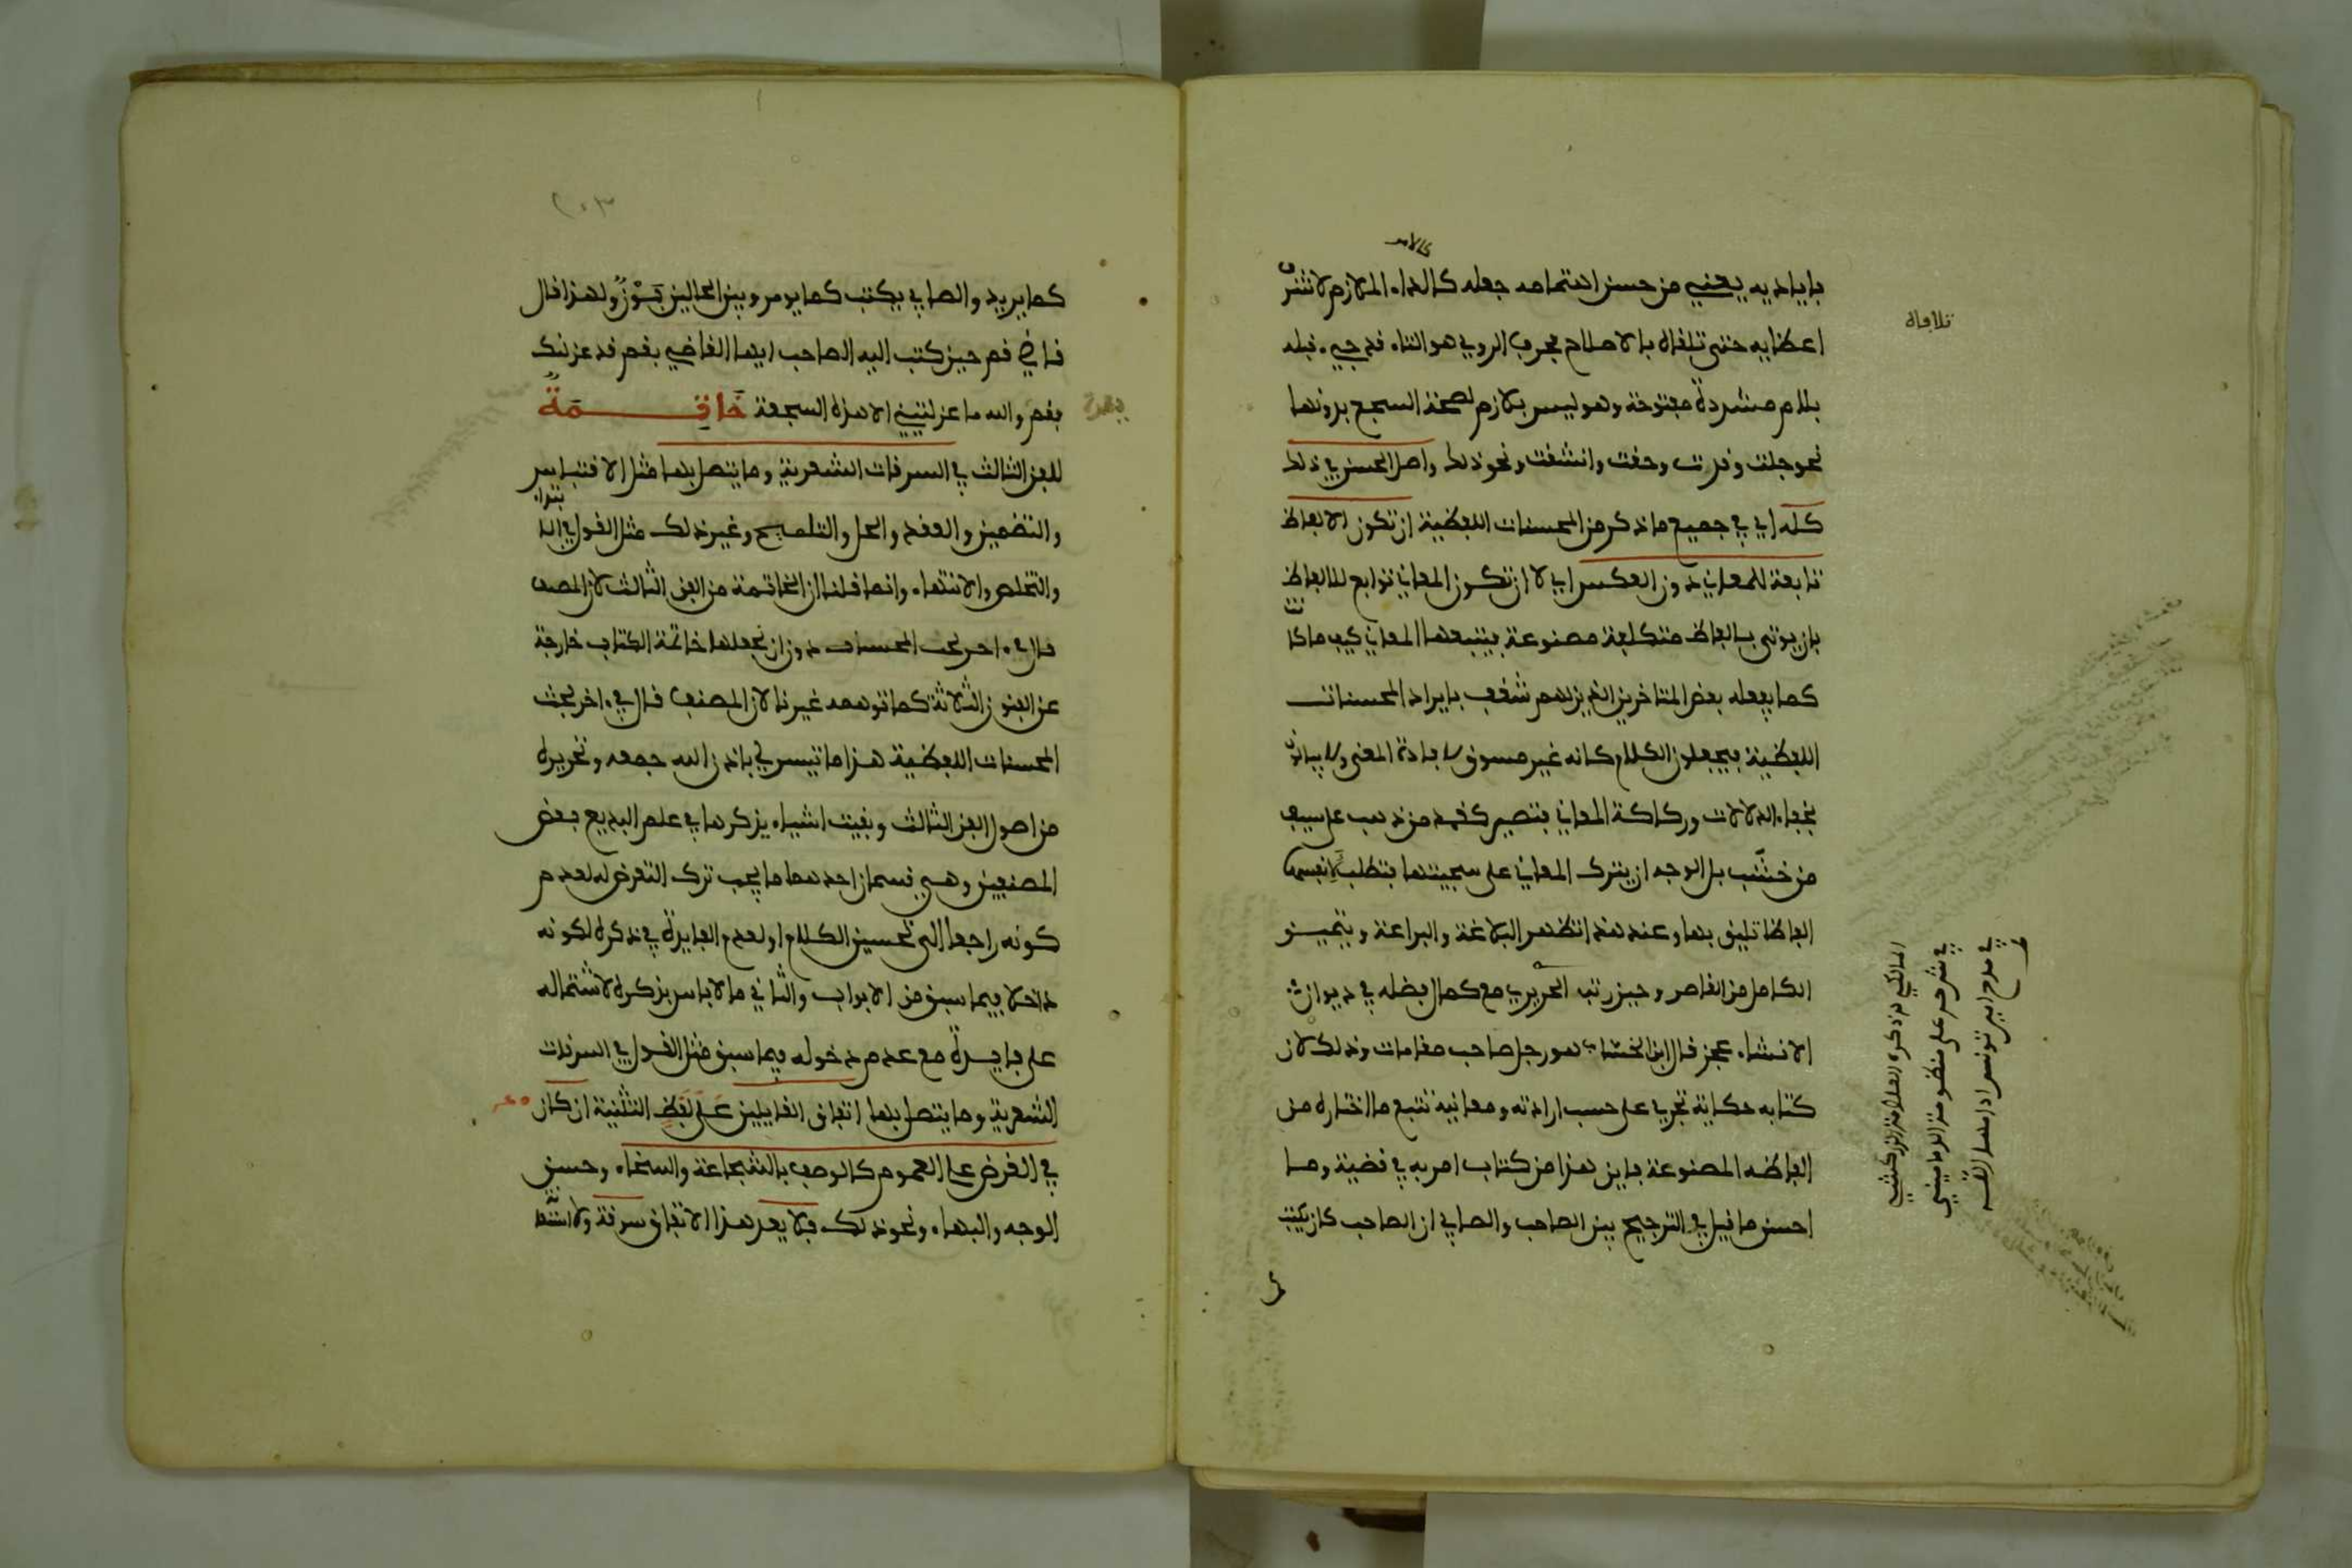 كالامر
باياديه يعني من حسن اهتمامه جعله كالداء الملازم لاشرف
اعضايه حتى تلافاه بالاصلاح فحرف الروي هو التاء قد جيء قبله
بلام مشددة مفتوحة وهو ليس بلازم لصحة السجع بدونها
نحو جلت ومدت وحقت وانشقت ونحو ذلك واصل الحسن في ذلك
كله اي في جميع ما ذكر من المحسنات اللفظية ان تكون الالفاظ
تابعة للمعاني دون العكس اي لا ان تكون المعاني توابع للالفاظ
بان يوتى بالفاظ متكلفة مصنوعة فيتبعها المعاني كيف ما كانت
كما يفعله بعض المتاخرين الذين لهم شغف بايراد المحسنات
اللفظية فيجعلون الكلام كانه غير مسوق لافادة المعنى ولا يبالون
بخفاء الدلالات وركاكة المعاني فتصير كغمد من ذهب على سيف
من خشب بل الوجه ان يترك المعاني على سجيتها فتطلب لانفسها
الفاظا تليق بها وعند هذا تظهر البلاغة والبراعة ويتميز
الكامل من القاصر وحين رتب الحريري مع كمال فضله في ديوان
الانشاء عجز فقال ابن الخشاب هو رجل صاحب مقامات وذلك لان
كتابه حكاية تجري على حسب ارادته ومعانيه تتبع ما اختاره من
الفاظه المصنوعة فاين هذا من كتاب امر به في قضية وما
احسن ما قيل في الترجيح بين الصاحب والصابي ان الصاحب كان يكتب
تلافاه
المالكي ذكره العلامة الزركشي
في شرحه على منظومة الدماميني
في مدح امير تونس ادامها الله
٢٠٣
كما يريد والصابي يكتب كما يومر وبين الحالين بَوْنٌ ولهذا قال
قاضي قم حين كتب اليه الصاحب ايها القاضي بقم قد عزلنك
فقم والله ما عزلتني الا هذه السجعة خاتمة
للفن الثالث في السرقات الشعرية وما يتصل بها مثل الاقتباس
والتضمين والعقد والحل والتلميح وغير ذلك مثل القول في الابتداء
والتخلص والانتهاء وانما قلنا ان الخاتمة من الفن الثالث لان المصنف
قال في اخر بحث المحسنات دون ان نجعلها خاتمة الكتاب خارجة
عن الفنون الثلاثة كما توهمه غيرنا لان المصنف قال في اخر بحث
المحسنات اللفظية هذا ما تيسر لي باذن الله جمعه وتحريره
من اصول الفن الثالث وبقيت اشياء يذكرها في علم البديع بعض
المصنفين وهي قسمان احدهما ما يجب ترك التعرض له لعدم
كونه راجعا الى تحسين الكلام او لعدم الفايدة في ذكره لكونه
داخلا فيما سبق من الابواب والثاني ما لا باس بذكره لاشتماله
على فايدة مع عدم دخوله فيما سبق مثل القول في السرقات
الشعرية وما يتصل بها اتفاق القايلين على لفظ التثنية ان كان
في الغرض على العموم كالوصف بالشجاعة والسخاء وحسن
الوجه والبهاء ونحو ذلك فلا يعد هذا الاتفاق سرقة ولا استعا